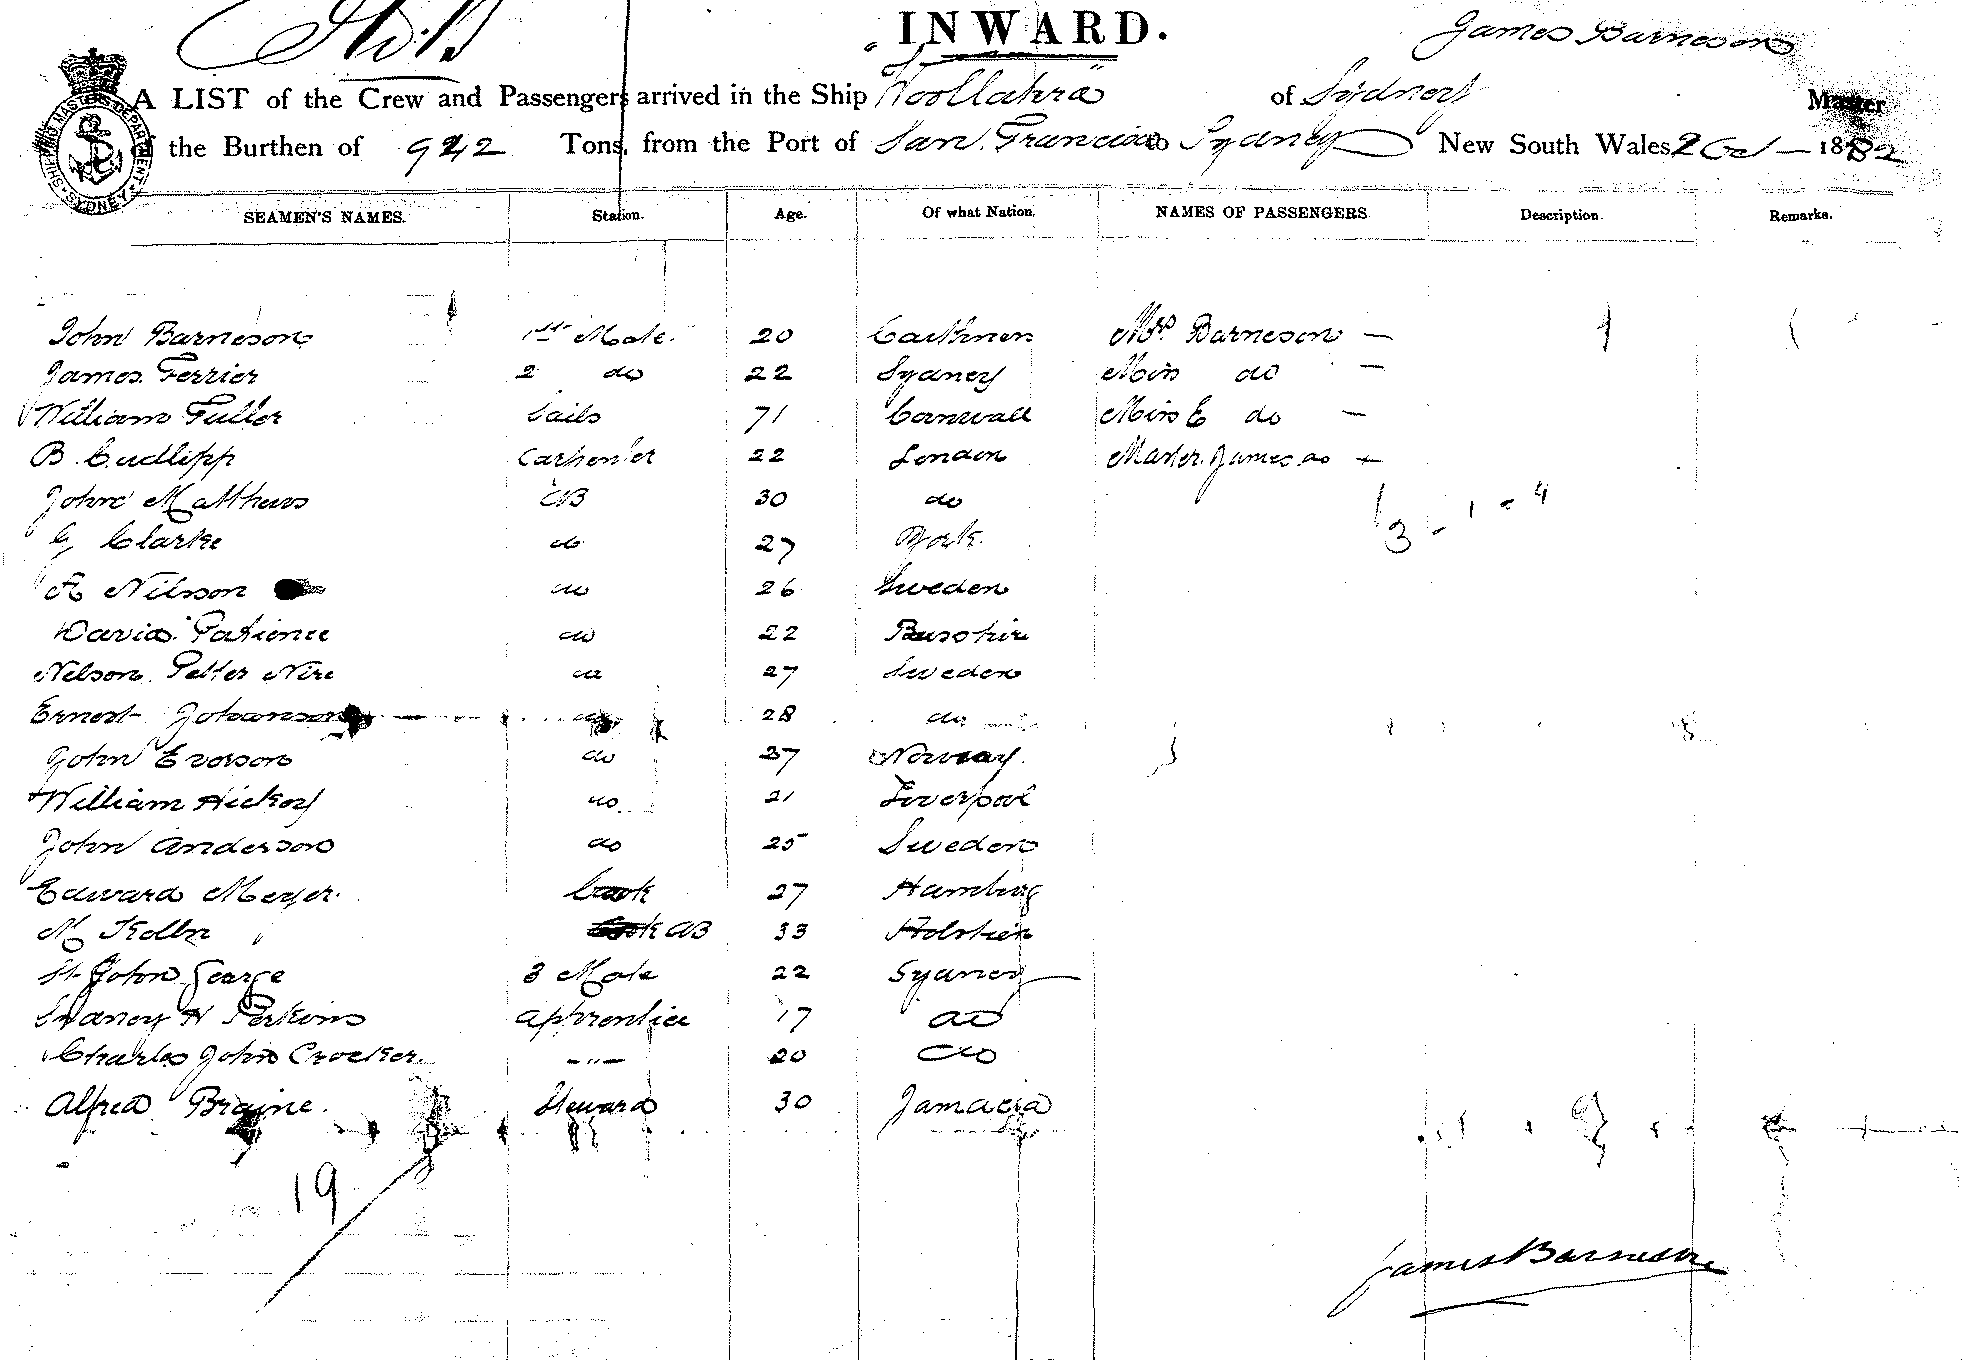 INWARD.
James Barneson
A LIST of the Crew and Passengers arrived in the Ship "Woollahra" of Sydney Master
of the Burthen of 942 Tons, from the Port of San Francisco to Sydney New South Wales 2 Oct - 1882
SHIPPING MASTER'S DEPARTMENT SYDNEY
SEAMEN'S NAMES. Station. Age. Of what Nation. NAMES OF PASSENGERS Description. Remarks.
John Barneson 1st Mate. 20 Caithness Mrs. Barneson —
James Ferrier 2 do 22 Sydney Miss do —
William Fuller Sails 71 Cornwall Miss E do —
B. Cudlipp Carpenter 22 London Master James do —
John Matthews AB 30 do
G Clarke do 27 York 3 - 1 = 4
A Nilsson do 26 Sweden
David Patience do 22 
Nilson Petter Nire do 27 Sweden
Ernest Johanson do 28 do
John Everson do 27 Norway.
William Hickey do 21 Liverpool
John Anderson do 25 Sweden
Edward Meyer. Cook 27 Hamburg
N Kolln AB 33 Holstien
St John George 3 Mate 22 Sydney
Sydney H Perkins apprentice 17 do
Charles John Crocker — " — 20 do
Alfred Braine. Steward 30 Jamacia
19
James Barneson